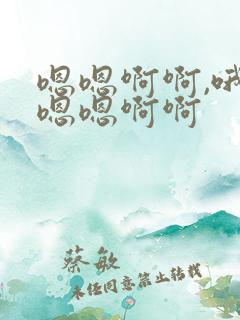 嗯嗯啊啊,哦
嗯嗯啊啊
蔡敏
未经同意禁止转载